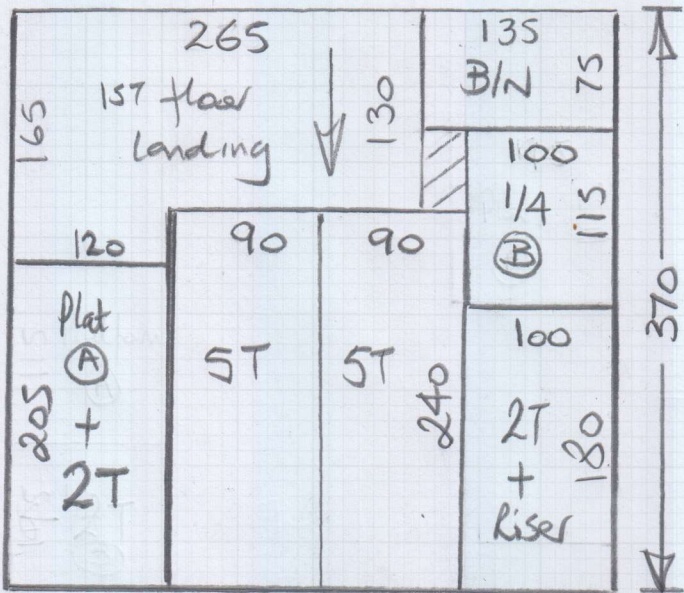 265
1ST floor
landing
165
130
135
B/N
75
100
1/4
B
115
370
120
90
90
Plat
A
+
2T
205
5T
5T
240
100
2T
+
Riser
180